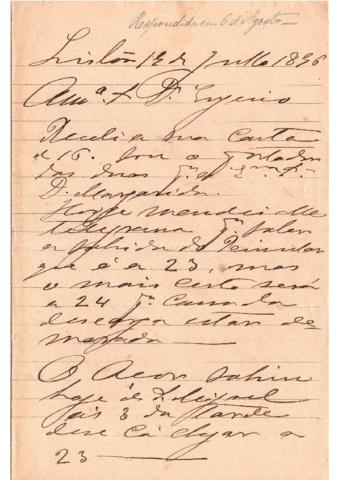 Respondida em 6 d'Agosto
Lisboa 19 de Julho 1896
Am.º e Dr. Eugenio
Recebi a sua carta
de 16.
das duas
D. Margarida.
Hoje mandei-lhe
telegrama p.ª saber
a sahida do Peninsular
que é a 23, mas
o mais certo será
a 24 p.r causa da
descarga estar de
morada
O Acor sahiu
hoje de S. Miguel
ás 3 da tarde
deve cá chegar a
23